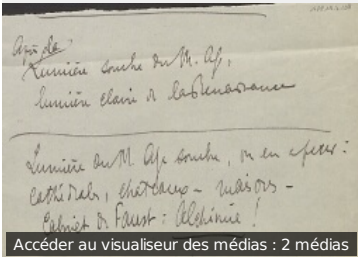 Après la
Lumière sombre du M. Age,
lumière claire de la Renaissance
Lumière du M. Age sombre, on en a peur :
Cathédrales, chateaux - maisons -
Cabinet de Faust : Alchimie !
Accéder au visualiseur des médias : 2 médias